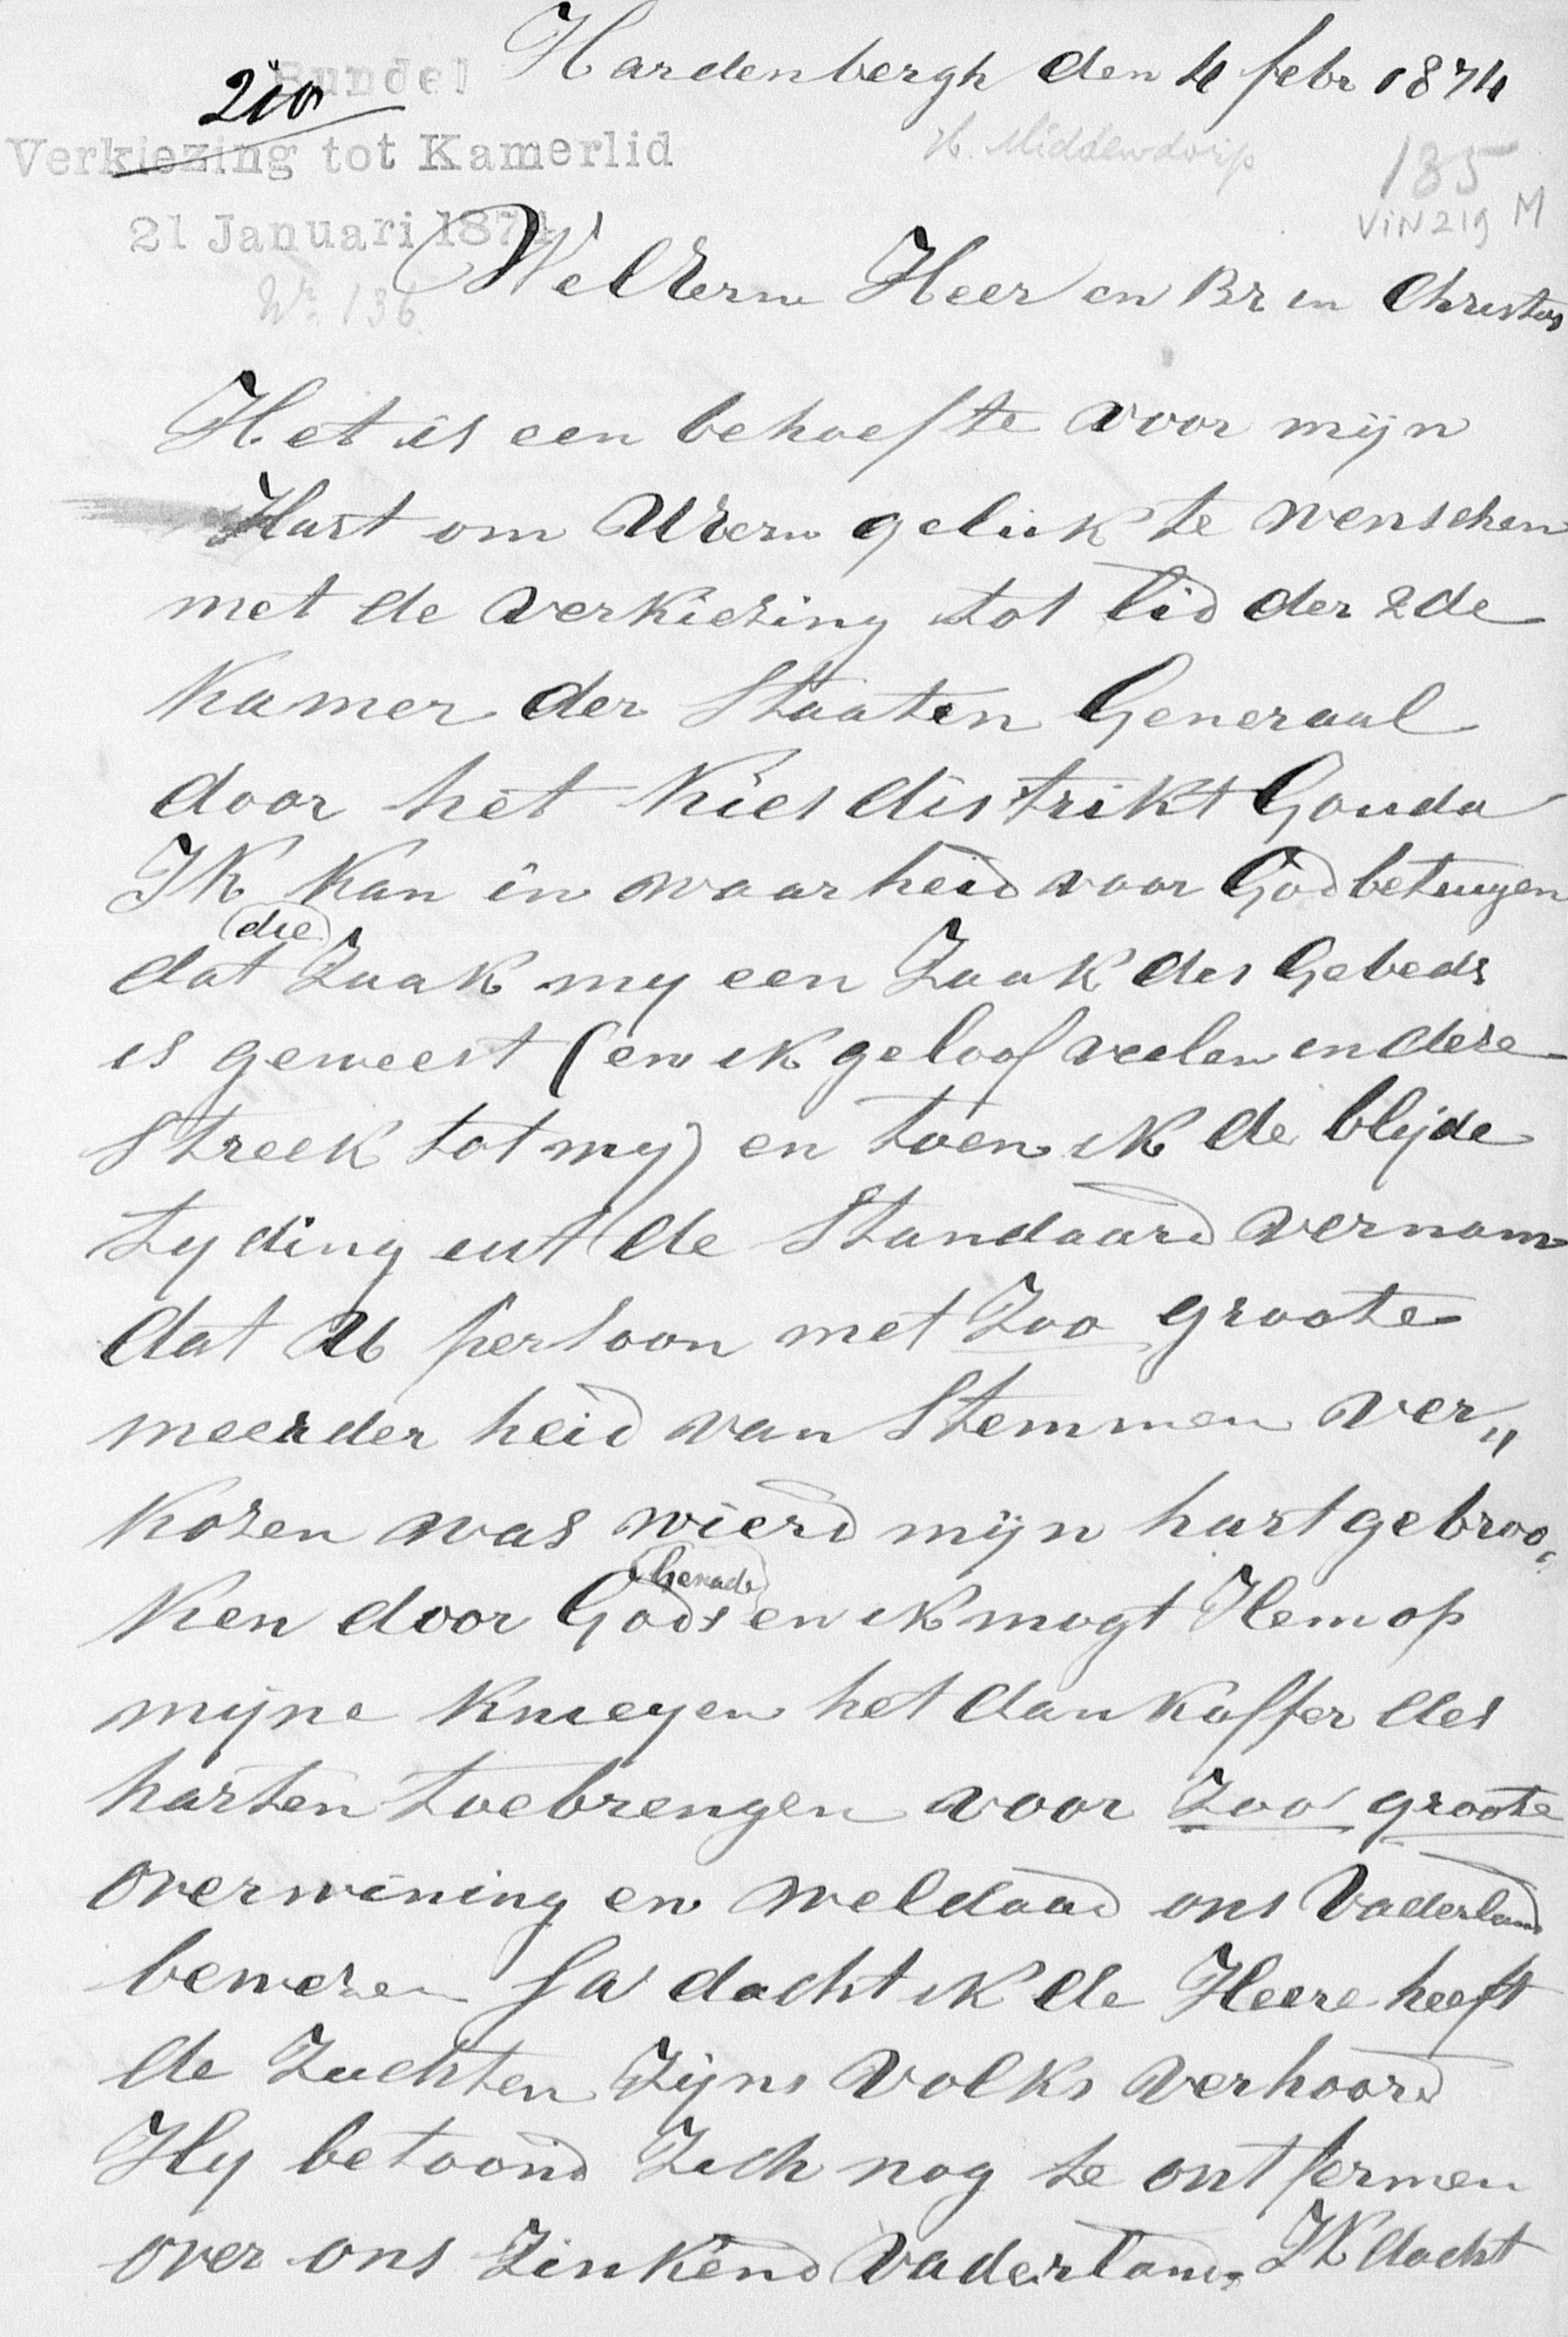 Bundel
Hardenbergh den 4 febr 1874
210
Verkiezing tot Kamerlid
H. Middendorp
135
21 Januari 1874
VIN219 M
No. 136
WelEerw Heer en Br in Christus
Het is een behoefte voor mijn
Hart om UEerw geluk te wenschen
met de verkiezing tot lid der 2de
Kamer der Staaten Generaal
door het Kies distrikt Gouda
IK Kan in waarheid voor God betuigen
(die)
dat Zaak my een Zaak des Gebeds
is geweest (en ik geloof veelen in deze
Streek tot my) en toen ik de blijde
tyding uit de Standaard vernam
dat U persoon met Zoo groote
meerder heid van Stemmen ver„
Kozen was wierd mijn hart gebroo„
(Genade)
Ken door Gods en ik mogt Hem op
mijne Knieyen het dankoffer des
harten toebrengen voor Zoo groote
overwining en weldaad ons Vaderland
bewezen Ja dacht ik de Heere heeft
de Zuchten Zijns Volks verhoord
Hy betoond Zich nog te ontfermen
over ons Zinkend Vaderland. IK dacht